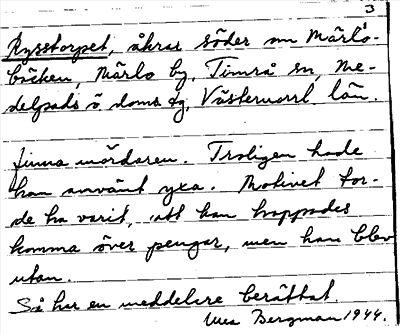 3
Ryrstorpet, åkrar söder om Märlo-
bäcken, Märlo by, Timrå sn, Me-
delpads ö doms dg, Västernorrl län.
finna mördaren. Troligen hade
han använt yxa. Motivet tor-
de ha varit, att han hoppades
komma över pengar, men han blev
utan.
Så har en meddelare berättat.
Bergman 1944.